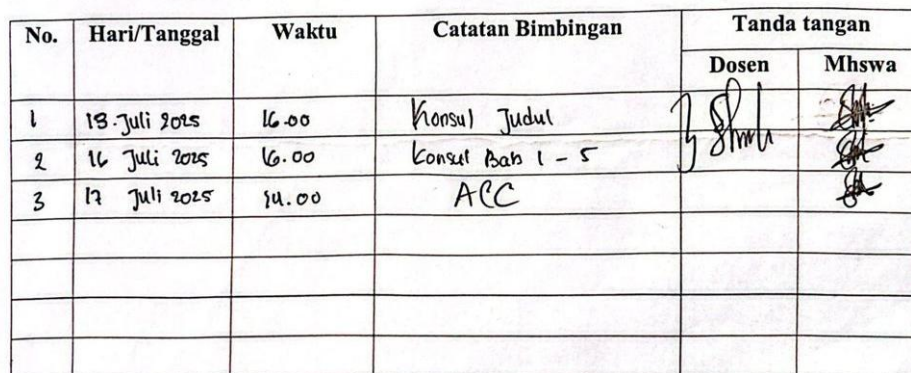 No. Hari/Tanggal Waktu Catatan Bimbingan Tanda tangan
Dosen Mhswa
1 13 Juli 2025 16.00 Konsul Judul
2 16 Juli 2025 16.00 Konsul Bab 1 - 5
3 17 Juli 2025 14.00 ACC